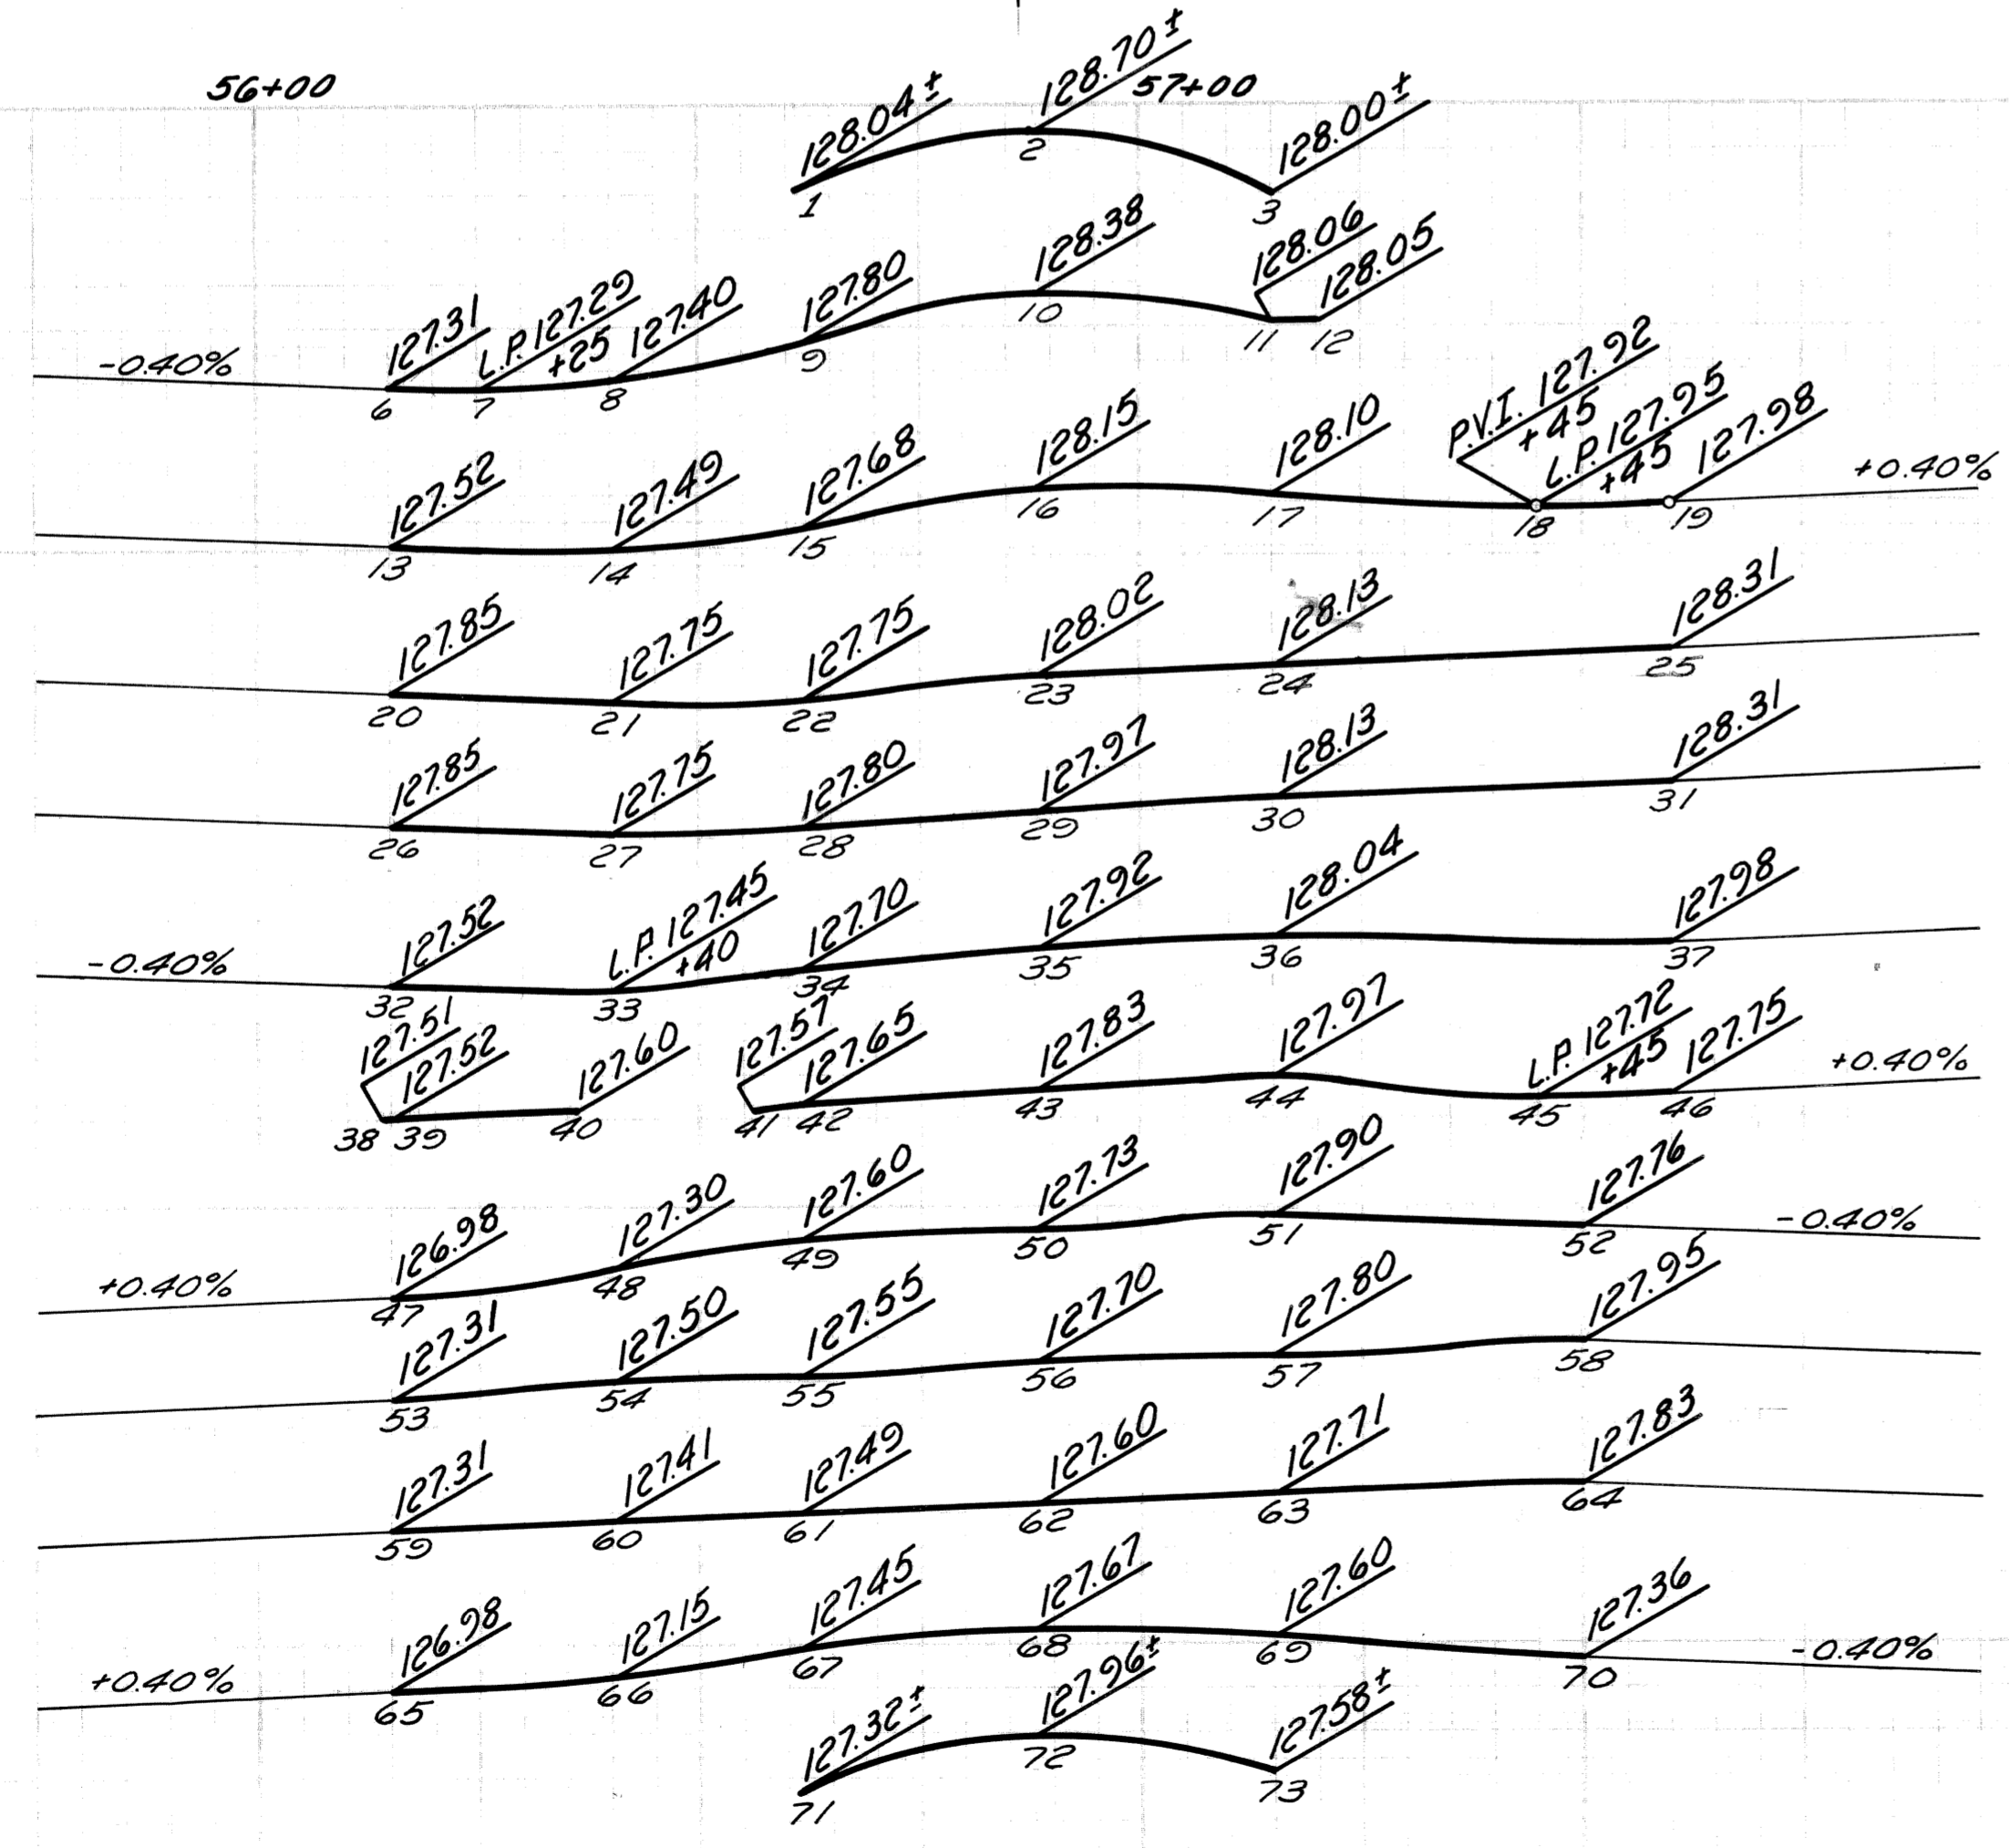 56+00
57+00
128.04±
128.70±
128.00±
1
2
3
-0.40%
127.31
L.P. 127.29
+25
127.40
127.80
128.38
128.06
128.05
6
7
8
9
10
11
12
127.52
127.49
127.68
128.15
128.10
P.V.I. 127.92
+45
L.P. 127.95
+45
127.98
+0.40%
13
14
15
16
17
18
19
127.85
127.75
127.75
128.02
128.13
128.31
20
21
22
23
24
25
127.85
127.75
127.80
127.97
128.13
128.31
26
27
28
29
30
31
-0.40%
127.52
L.P. 127.45
+40
127.70
127.92
128.04
127.98
32
33
34
35
36
37
127.51
127.52
127.60
127.57
127.65
127.83
127.97
L.P. 127.72
+45
127.75
+0.40%
38
39
40
41
42
43
44
45
46
+0.40%
126.98
127.30
127.60
127.73
127.90
127.76
-0.40%
47
48
49
50
51
52
127.31
127.50
127.55
127.70
127.80
127.95
53
54
55
56
57
58
127.31
127.41
127.49
127.60
127.71
127.83
59
60
61
62
63
64
+0.40%
126.98
127.15
127.45
127.67
127.60
127.36
-0.40%
65
66
67
68
69
70
127.32±
127.96±
127.58±
71
72
73